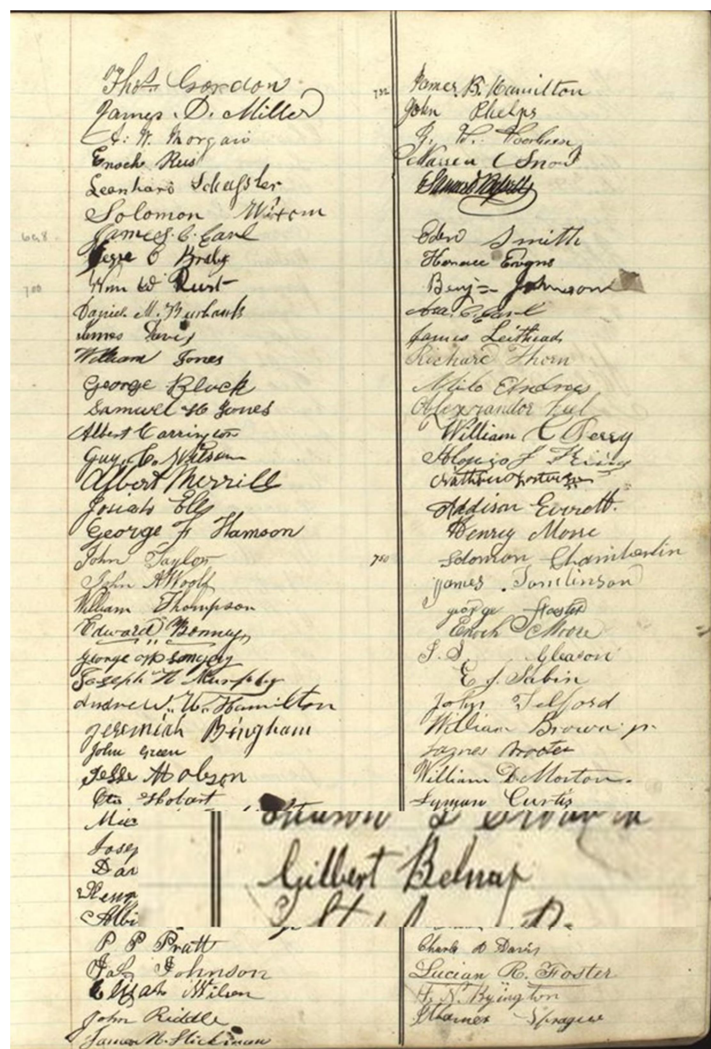 Thos Gordon
James. D. Miller
W. Morgan
Enoch Rees
Leonhard
Solomon Wixom
698 James C. Earl
Jesse C Braley
700 Wm W Rust
Daniel M. Burbank
James Davis
William Jones
George Black
Samuel H Jones
Albert Carrington
Guy. C. Wilson
Albert Merrill
Josiah Ells
George F Hamson
John Taylor
John A Woolf
William Thompson
Edward Bonney
George
Joseph H Murphy
Andrew. H. Hamilton
Jeremiah Bingham
John Green
Jesse Hobson
Otis Hobart
Mic
Josep
Dav
Henr
Albi
P P Pratt
Johnson
Elijah Wilson
John Riddle
James N. Stickman
732 James. B. Hamilton
John Phelps
Warren Snow
Eden Smith
Horace Evans
Benj= Johnson
Asa C Earl
James Leithead
Richard Thorn
Milo Andrus
Alexander
William C Perry
Alonzo
Addison Everett.
Henry Moore
750 Solomon Chamberlin
James Tomlinson
George Foster
Enoch Moore
Gleason
E. J. Sabin
John Telford
William Brown jr.
James
William D Morton.
Lyman Curtis
Gilbert Belnap
Charls D Davis
Lucian R. Foster
H. N. Byington
Ithamer Sprague